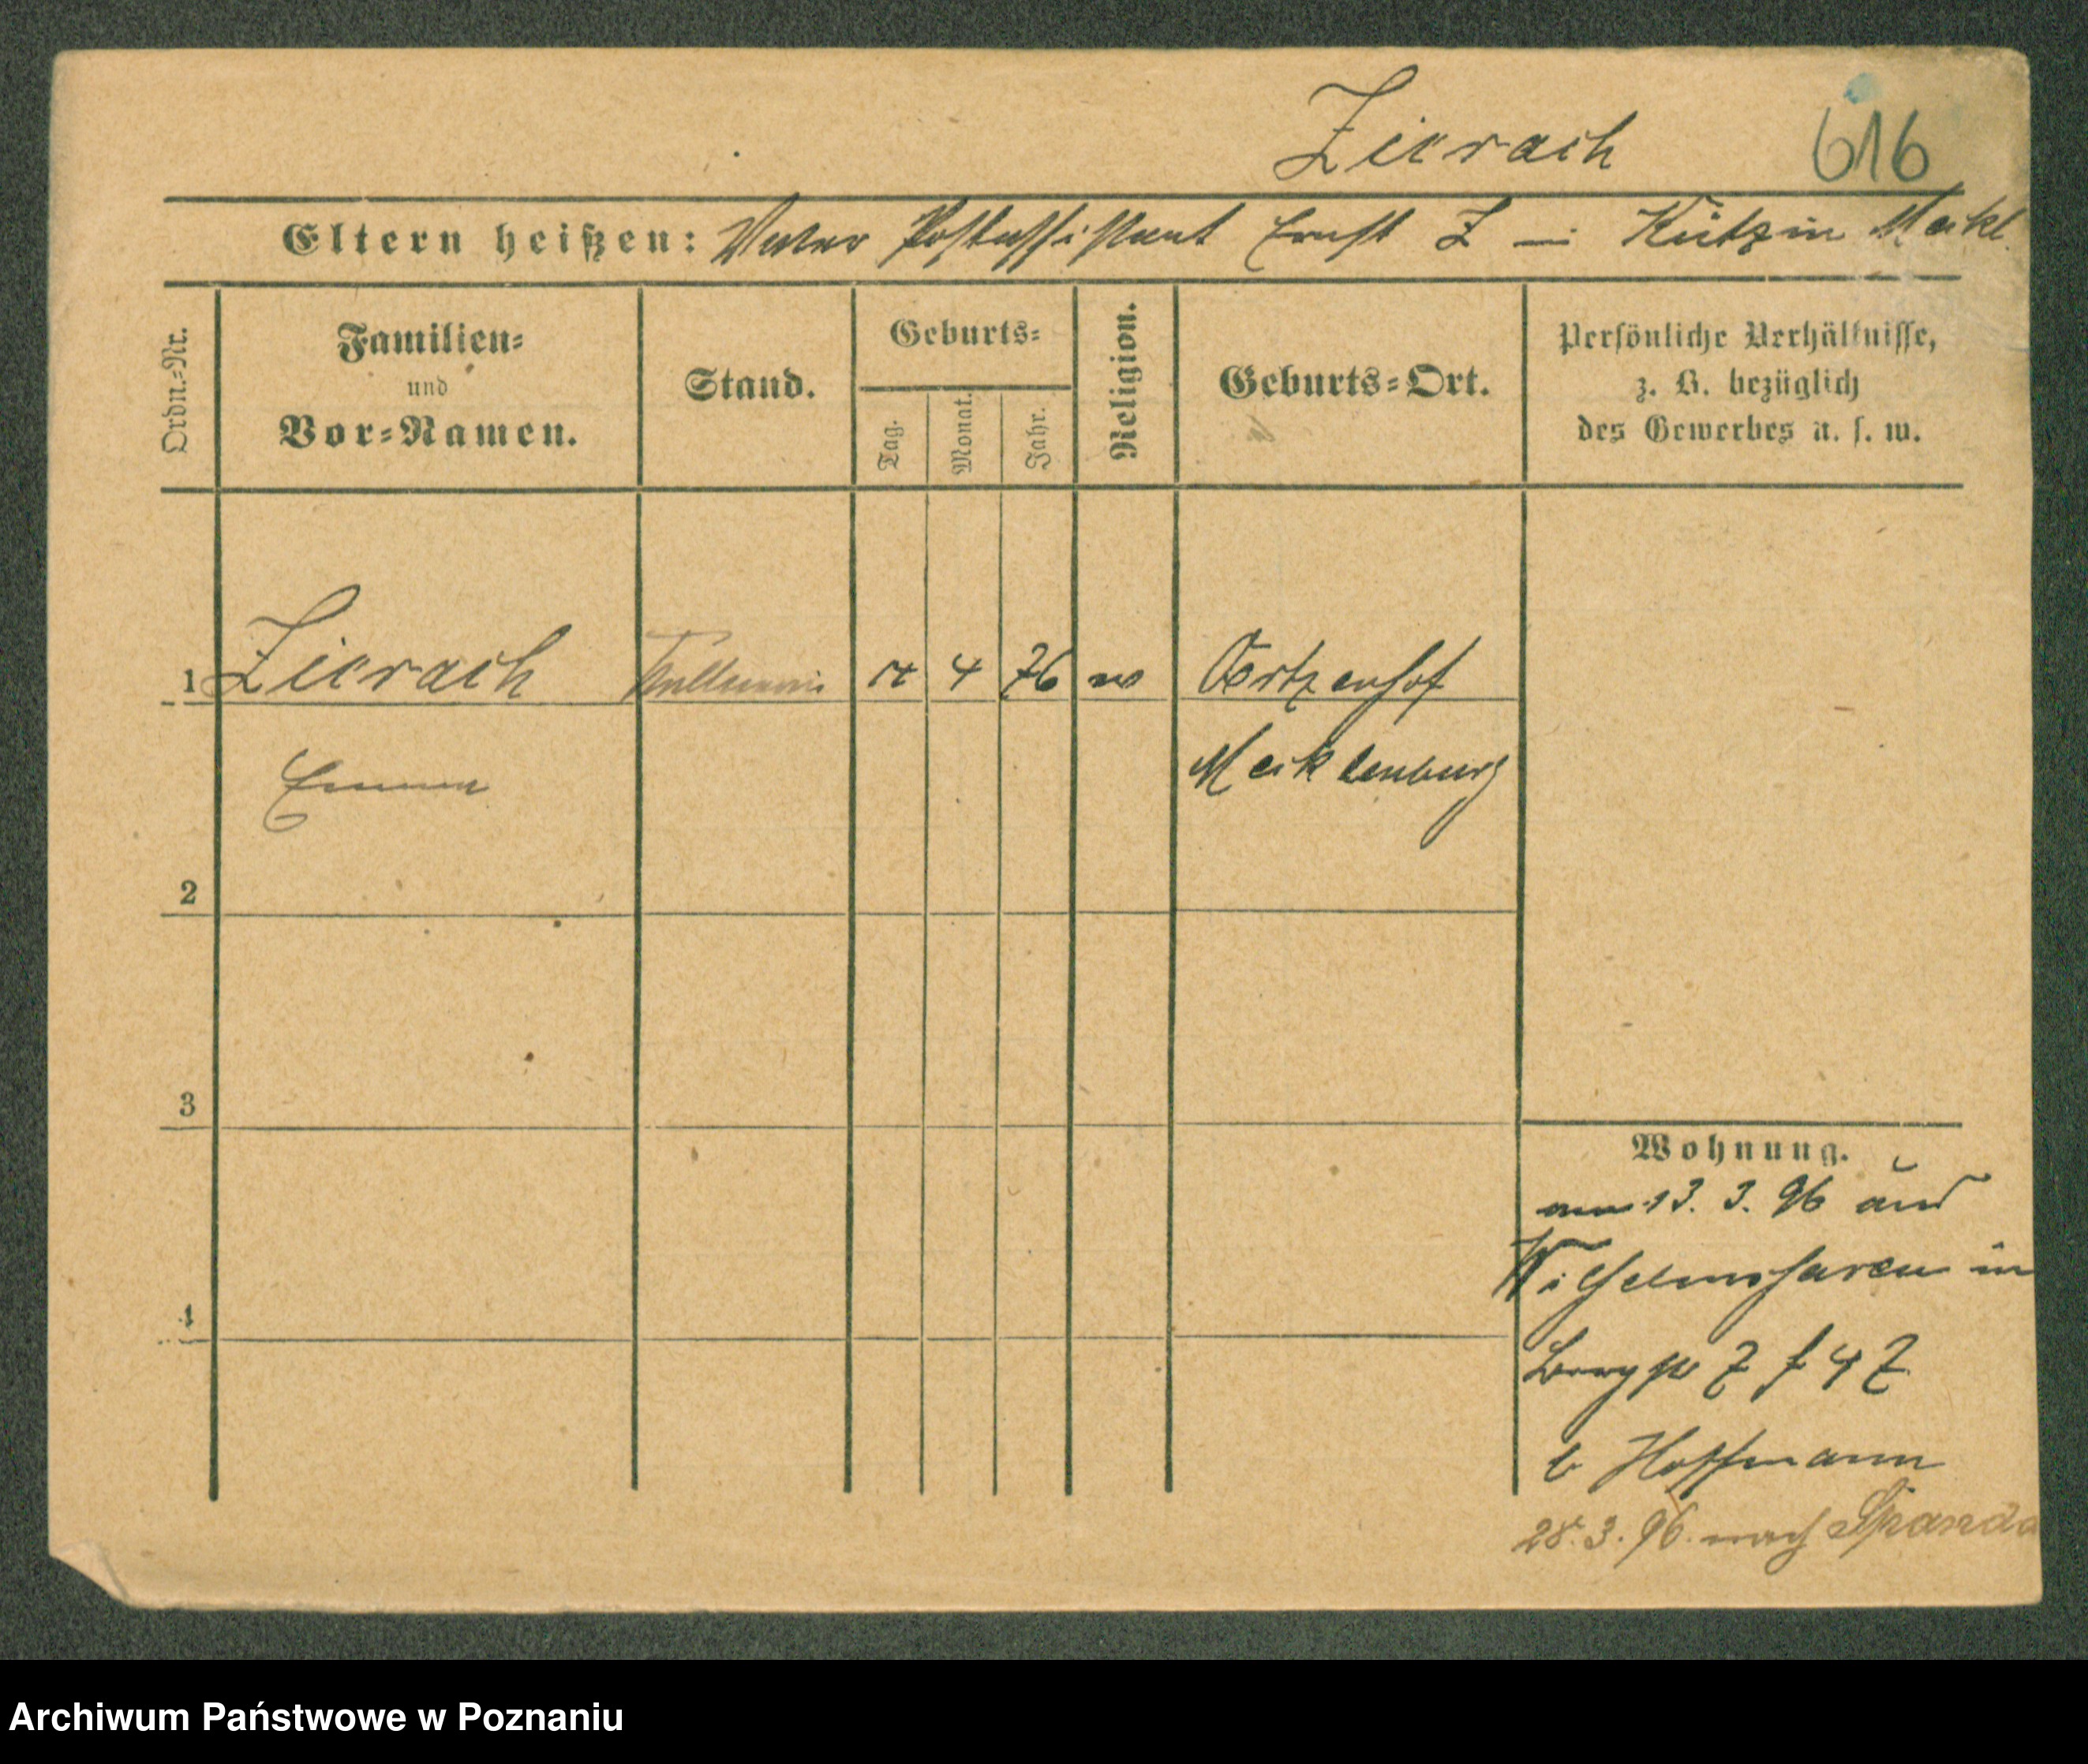 Zierach 616
Eltern heißen: Vater Postassistent Ernst Z – Kützin Meckl.
Ordn.-Nr.
Familien-
und
Vor-Namen.
Stand.
Geburts-
Tag.
Monat.
Jahr.
Religion.
Geburts-Ort.
Persönliche Verhältnisse,
z. B. bezüglich
des Gewerbes u. s. w.
1 Zierach Kellnerin 4 76 Oertzenhof
Emma Mecklenburg
2
3
4
Wohnung.
13. 3. 96 aus
Wilhelmshaven in
7 47
b Hoffmann
28. 3. 96. nach Spanda
Archiwum Państwowe w Poznaniu